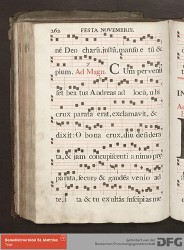 262 FESTA NOVEMBRIS.
ne Deo charis, justa, quantis e tu &
pium. Ad Magn. C Um perveni
set bea tus Andreas ad locu, ubi
crux parata erat, exclamavit, &
dixit: O bona crux, diu desidera
ta, & jam concupiscenti a nimo præ
parata, securus & gaudens venio ad
te, i ta & tu ex ultas suscipias me
Benediktinerabtei St. Matthias
Trier
DFG